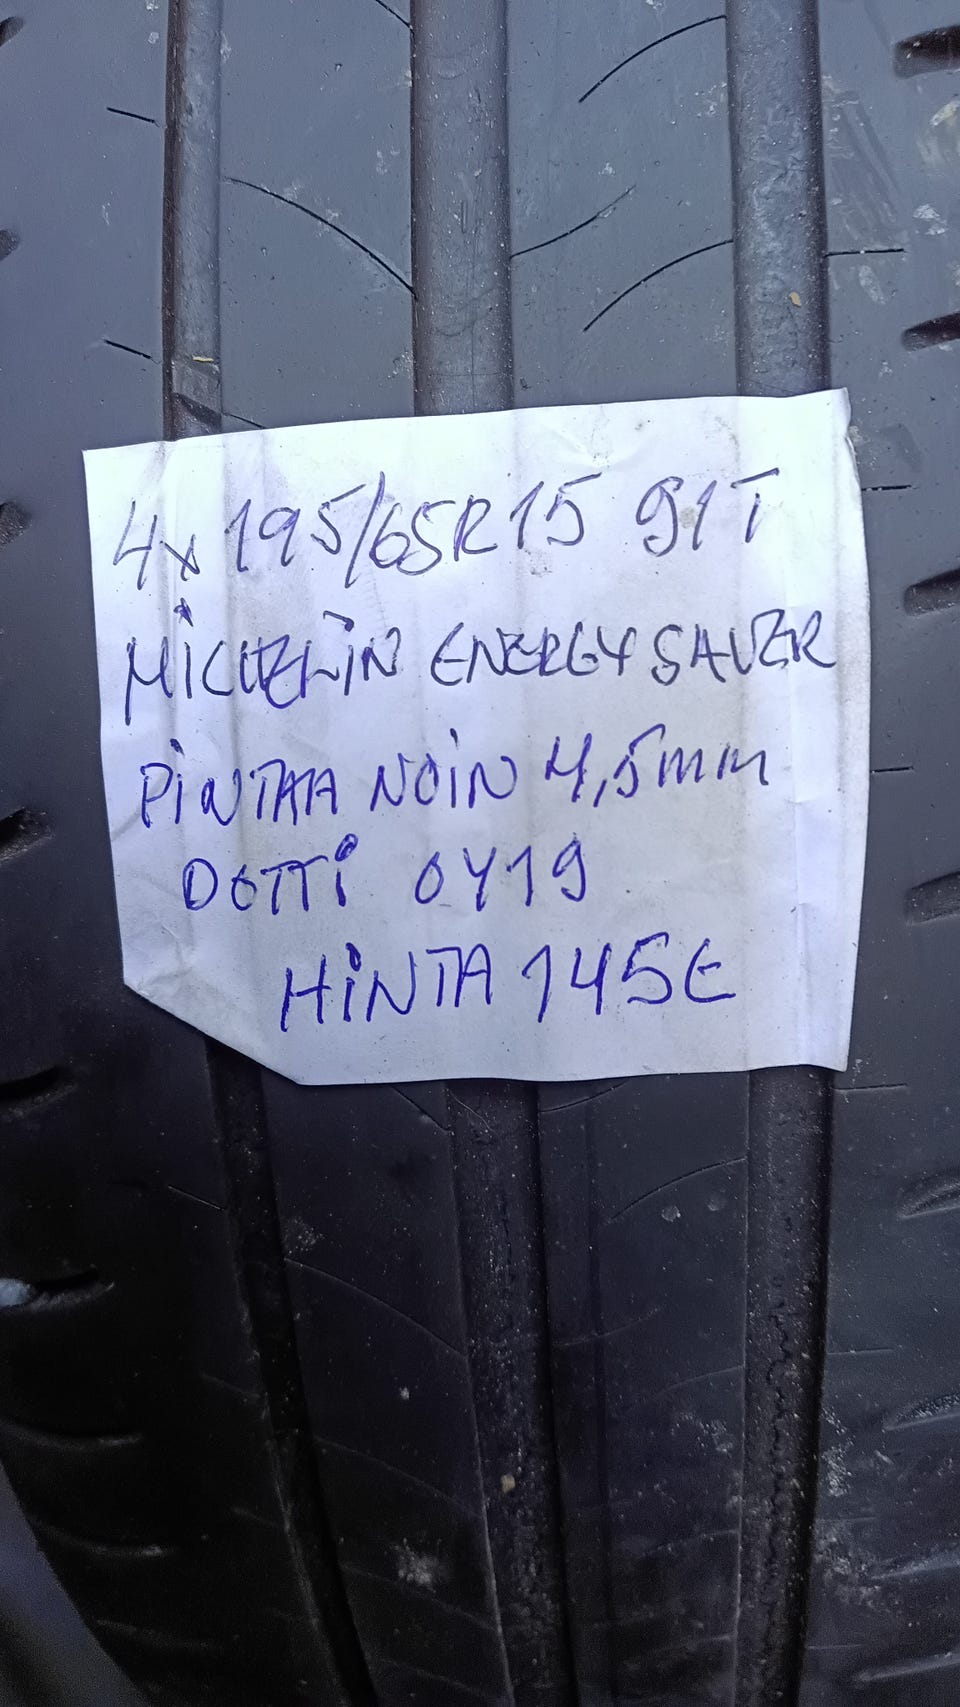 4x 195/65R15 91T
MiCHELiN ENERGY SAVER
PiNTAA NOiN 4,5mm
DOTTi 0419
HiNTA 145€